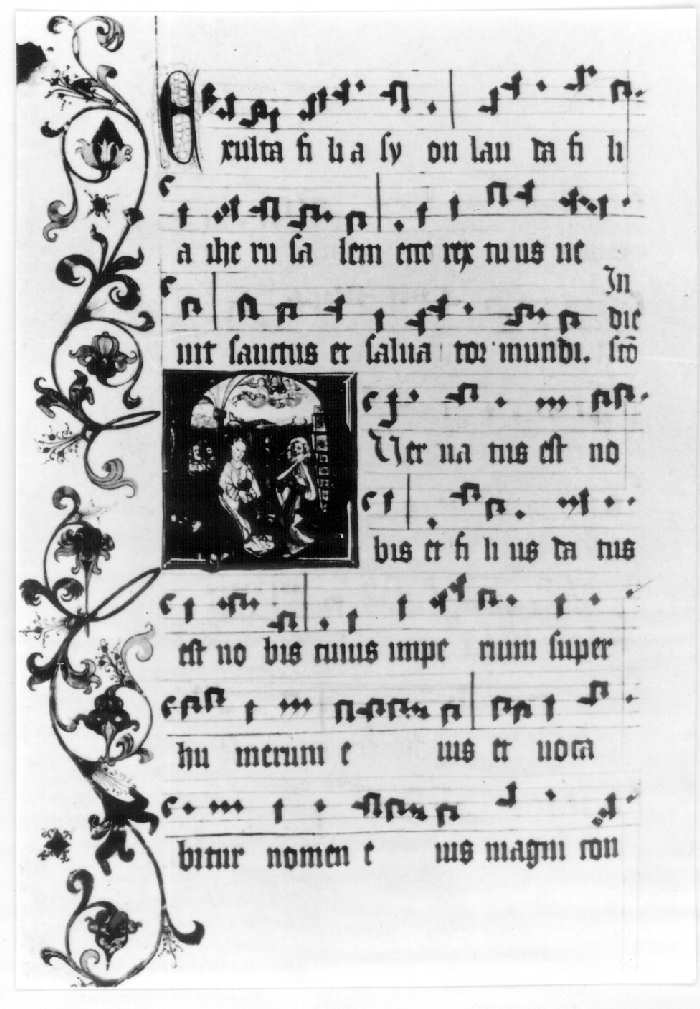 Exulta fi li a sy on lau da fi li
a ihe ru sa lem ecce rex tu us ve
nit sanctus et salua tor mundi.
In die scō
Uer na tus est no
bis et fi li us da tus
est no bis cuius impe rium super
hu merum e ius et uoca
bitur nomen e ius magni con